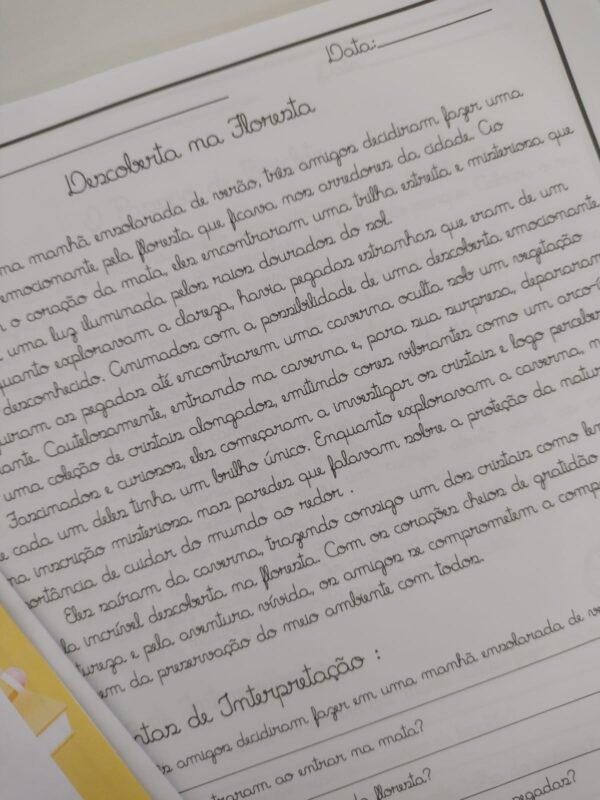 Data:
Descoberta na Floresta
ma manhã ensolarada de verão, três amigos decidiram fazer uma
emocionante pela floresta que ficava nos arredores da cidade. Ao
o coração da mata, eles encontraram uma trilha estreita e misteriosa que
uma luz iluminada pelos raios dourados do sol.
quanto exploravam a clareza, havia pegadas estranhas que eram de um
desconhecido. Animados com a possibilidade de uma descoberta emocionante
uiram as pegadas até encontrarem uma caverna oculta sob um vegetação
ante. Cautelosamente, entrando na caverna e, para sua surpresa, depararam
uma coleção de cristais alongados, emitindo cores vibrantes como um arco-í
Fascinados e curiosos, eles começaram a investigar os cristais e logo perceber
e cada um deles tinha um brilho único. Enquanto exploravam a caverna,
na inscrição misteriosa nas paredes que falavam sobre a proteção da natur
ortância de cuidar do mundo ao redor .
Eles saíram da caverna, trazendo consigo um dos cristais como lem
la incrível descoberta na floresta. Com os corações cheios de gratidão
tureza e pela aventura vivida, os amigos se comprometem a comp
em da preservação do meio ambiente com todos.
ntas de Interpretação :
amigos decidiram fazer em uma manhã ensolarada de ve
traram ao entrar na mata?
floresta?
pegadas?